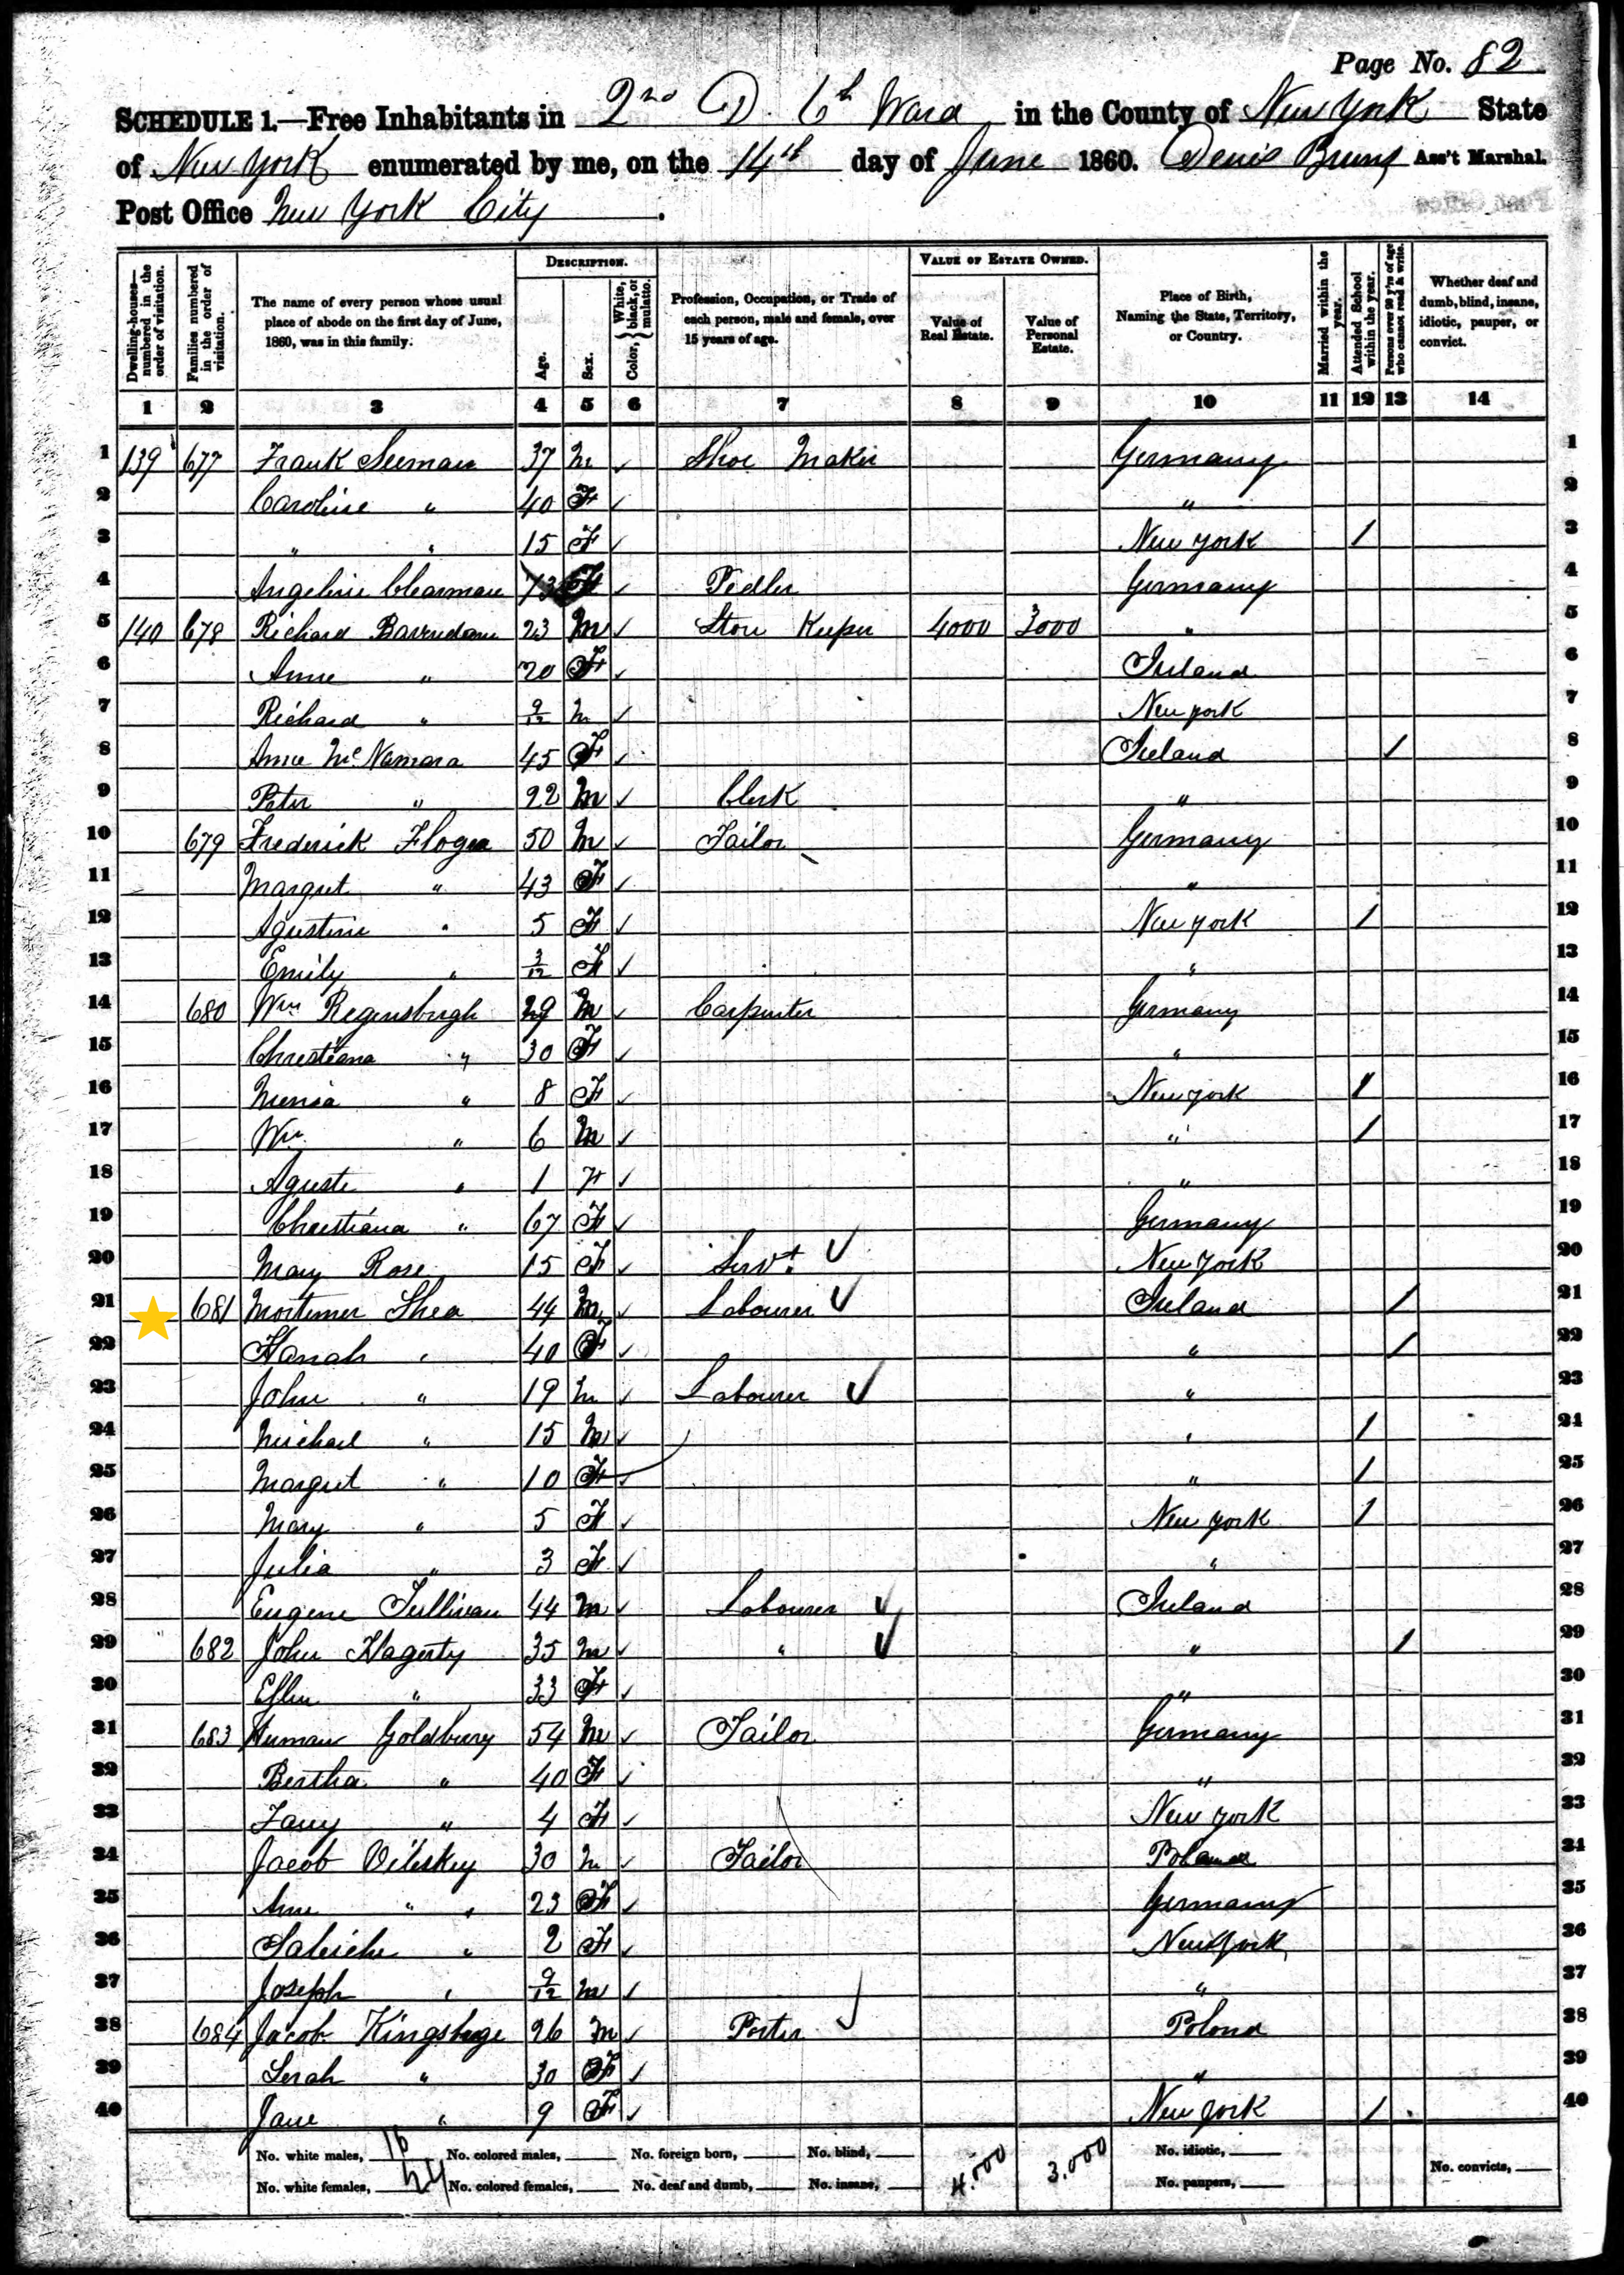 Page No. 82
SCHEDULE 1.—Free Inhabitants in 2nd D. 6th Ward in the County of New York State
of New York enumerated by me, on the 14th day of June 1860. Denis Ass't Marshal.
Post Office New York City.
Dwelling-houses—numbered in the order of visitation.
Families numbered in the order of visitation.
The name of every person whose usual place of abode on the first day of June, 1860, was in this family.
DESCRIPTION.
Age.
Sex.
Color, White, black, or mulatto.
Profession, Occupation, or Trade of each person, male and female, over 15 years of age.
VALUE OF ESTATE OWNED.
Value of Real Estate.
Value of Personal Estate.
Place of Birth, Naming the State, Territory, or Country.
Married within the year.
Attended School within the year.
Persons over 20 y'rs of age who cannot read & write.
Whether deaf and dumb, blind, insane, idiotic, pauper, or convict.
1 2 3 4 5 6 7 8 9 10 11 12 13 14
1 139 677 Frank Seeman 37 M ✓ Shoe Maker Germany 1
2 Caroline " 40 F ✓ " 2
3 " " 15 F ✓ New York / 3
4 Angeline 13 F ✓ Pedler Germany 4
5 140 678 Richard Bavendam 23 M ✓ Store Keeper 4000 3000 " 5
6 Anne " 20 F ✓ Ireland 6
7 Richard " 9/12 M ✓ New York 7
8 Anne McNamara 45 F ✓ Ireland / 8
9 Peter " 22 M ✓ Clerk " 9
10 679 Frederick 50 M ✓ Tailor Germany 10
11 Margret " 43 F ✓ " 11
12 Agustine " 5 F ✓ New York / 12
13 Emily " 3/12 F ✓ " 13
14 680 Wm Regensburgh 29 M ✓ Carpenter Germany 14
15 Christiana " 30 F ✓ " 15
16 " 8 F ✓ New York / 16
17 Wm " 6 M ✓ " / 17
18 Aguste " 1 F ✓ " 18
19 Christiana " 67 F ✓ Germany 19
20 Mary Rose 15 F ✓ Servt ✓ New York 20
21 681 Mortimer Shea 44 M ✓ Labourer ✓ Ireland / 21
22 Hanah " 40 F ✓ " / 22
23 John " 19 M ✓ Labourer ✓ " 23
24 Michael " 15 M ✓ " / 24
25 Margret " 10 F ✓ " / 25
26 Mary " 5 F ✓ New York / 26
27 Julia " 3 F ✓ " 27
28 Eugene Sullivan 44 M ✓ Labourer ✓ Ireland 28
29 682 John Hagerty 35 M ✓ " ✓ " / 29
30 Ellen " 33 F ✓ " 30
31 683 Herman Goldburg 54 M ✓ Tailor Germany 31
32 Bertha " 40 F ✓ " 32
33 Fany " 4 F ✓ New York 33
34 Jacob 30 M ✓ Tailor Poland 34
35 Ann " 23 F ✓ Germany 35
36 " 2 F ✓ New York 36
37 Joseph " 9/12 M ✓ " 37
38 684 Jacob 26 M ✓ Porter ✓ Polond 38
39 Serah " 30 F ✓ " 39
40 Jane " 9 F ✓ New York / 40
No. white males, 16 No. colored males, No. foreign born, No. blind, 4.000 3.000 No. idiotic,
No. white females, 24 No. colored females, No. deaf and dumb, No. insane, No. paupers, No. convicts,